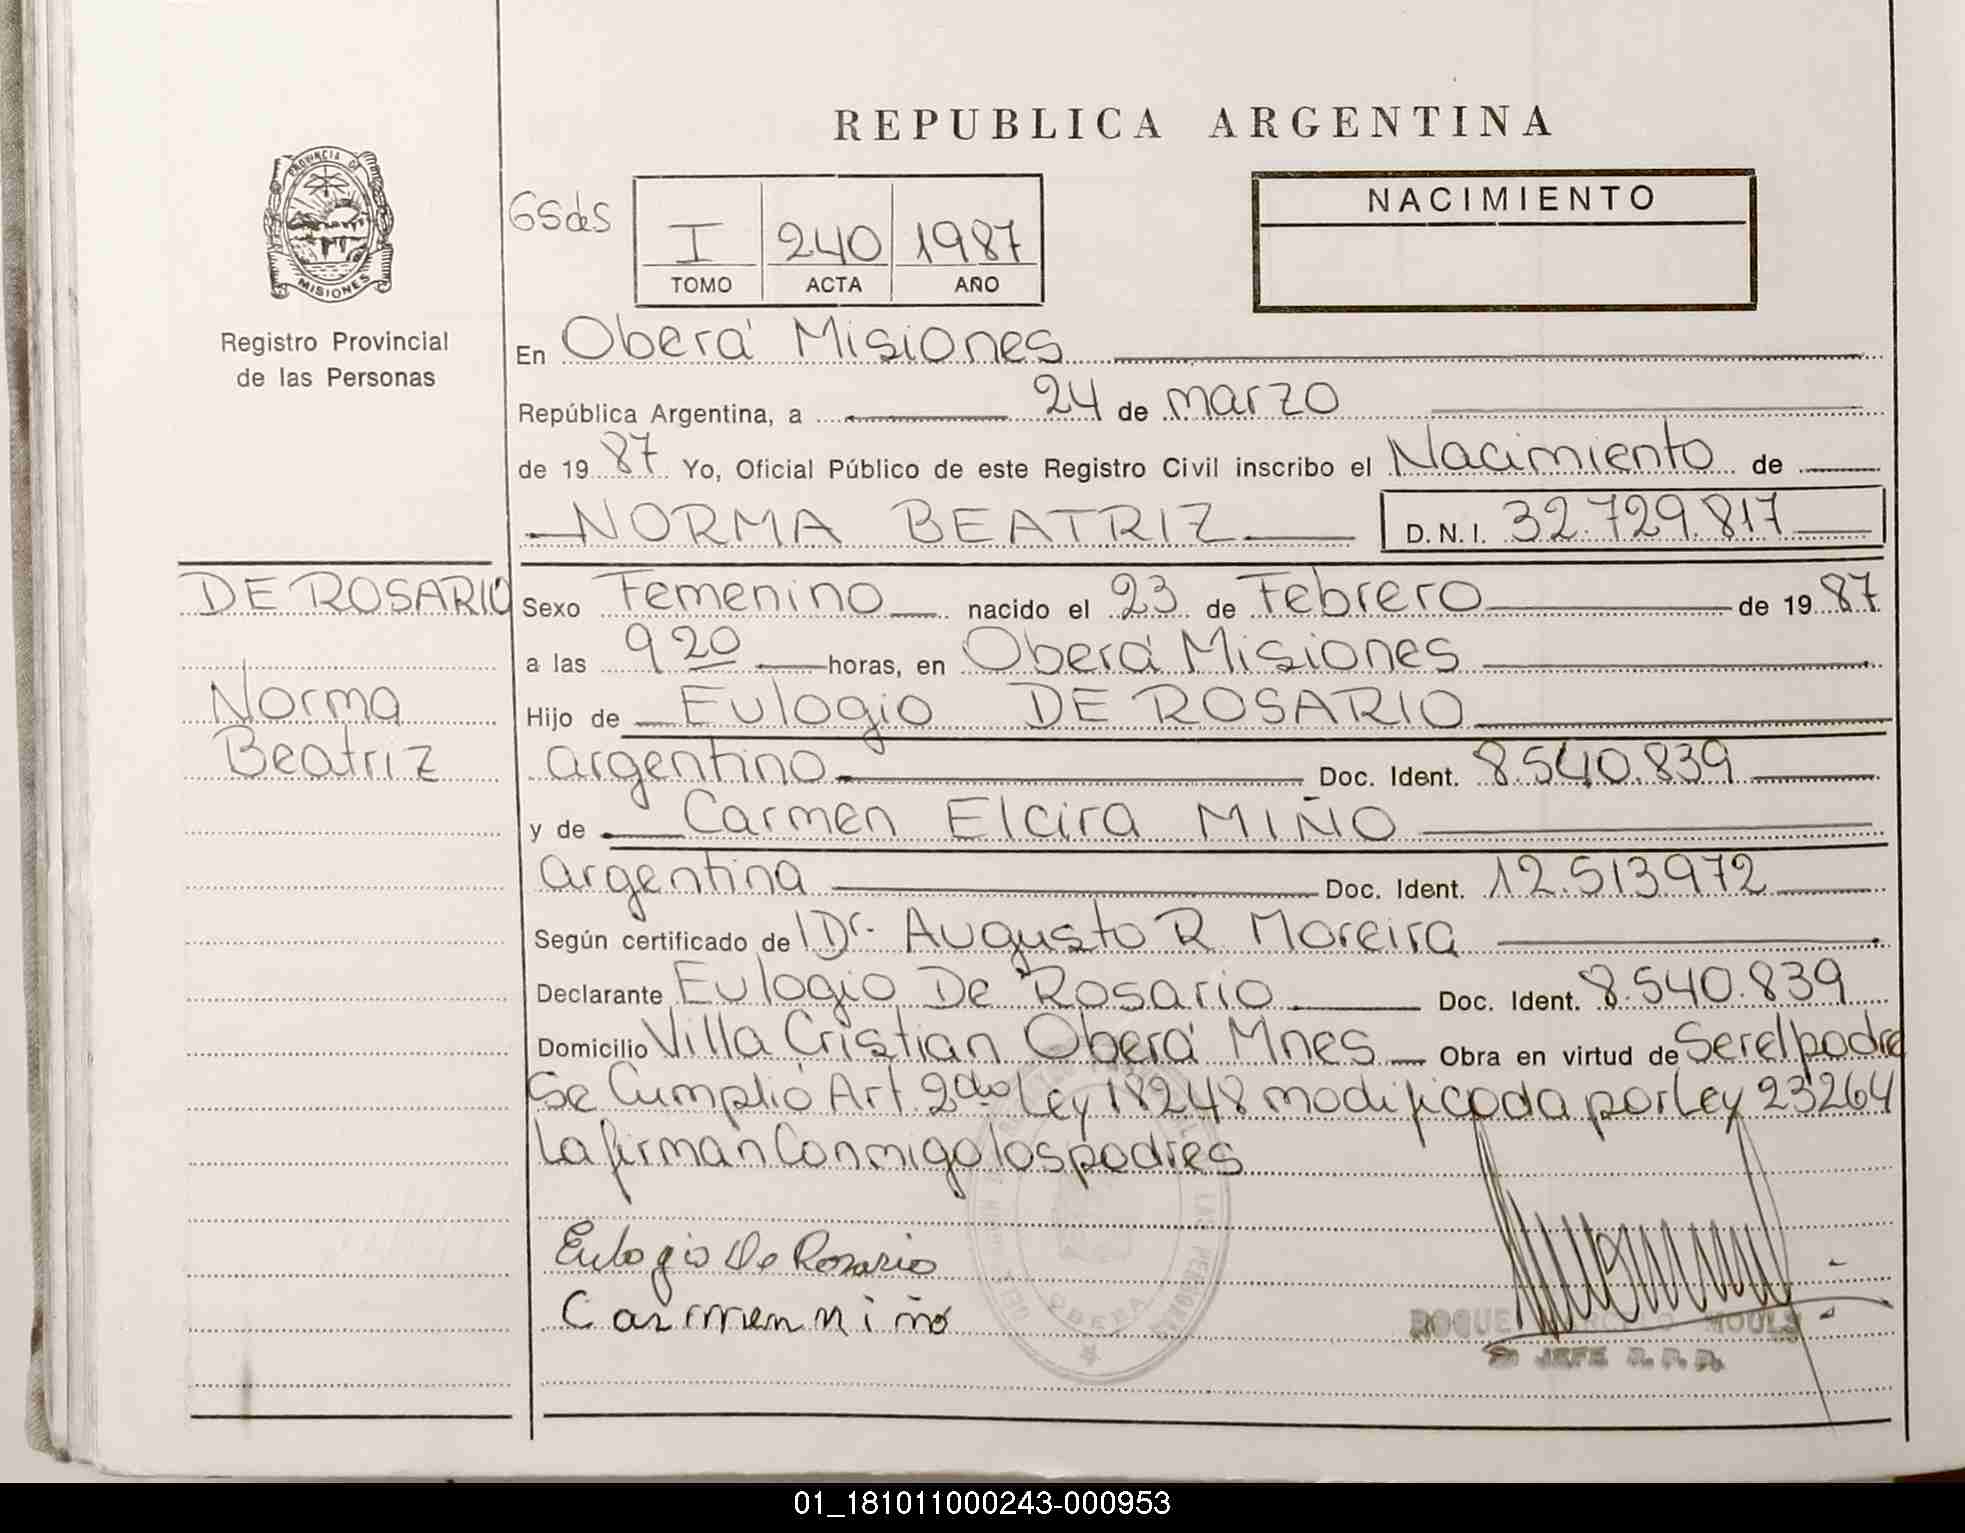 REPUBLICA ARGENTINA
PROVINCIA DE
MISIONES
Registro Provincial
de las Personas
I 240 1987
TOMO ACTA AÑO
NACIMIENTO
En Oberá Misiones
República Argentina, a 24 de marzo
de 19 87 Yo, Oficial Público de este Registro Civil inscribo el Nacimiento de
NORMA BEATRIZ D.N.I. 32.729.817
DE ROSARIO
Norma
Beatriz
Sexo Femenino nacido el 23 de Febrero de 19 87
a las 9 20 horas, en Oberá Misiones
Hijo de Eulogio DE ROSARIO
argentino Doc. Ident. 8.540.839
y de Carmen Elcira MIÑO
argentina Doc. Ident. 12.513.972
Según certificado de Dr. Augusto R Moreira
Declarante Eulogio De Rosario Doc. Ident. 8.540.839
Domicilio Villa Cristian Oberá Mnes Obra en virtud de Ser el padre
Se Cumplió Art. 2do Ley 18248 modificada por Ley 23264
La firman Conmigo los padres
Eulogio De Rosario
Carmen Miño
LAS PERSONAS
OBERA
ROQUE MOULS
JEFE R.P.P.
01_181011000243-000953